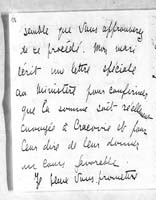 semble que vous approuverez
de ce procédé. Mon mari
écrit une lettre spéciale
au Ministère pour confirmer
que la somme soit réellement
envoyée à Cracovie et pour
leur dire de leur donner
un cours favorable.
Je peux vous promettre